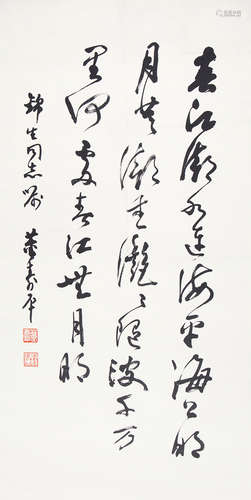 春江潮水连海平海上明
月共潮生滟〻随波千万
里何处春江無月明
锦生同志嘱 董寿平